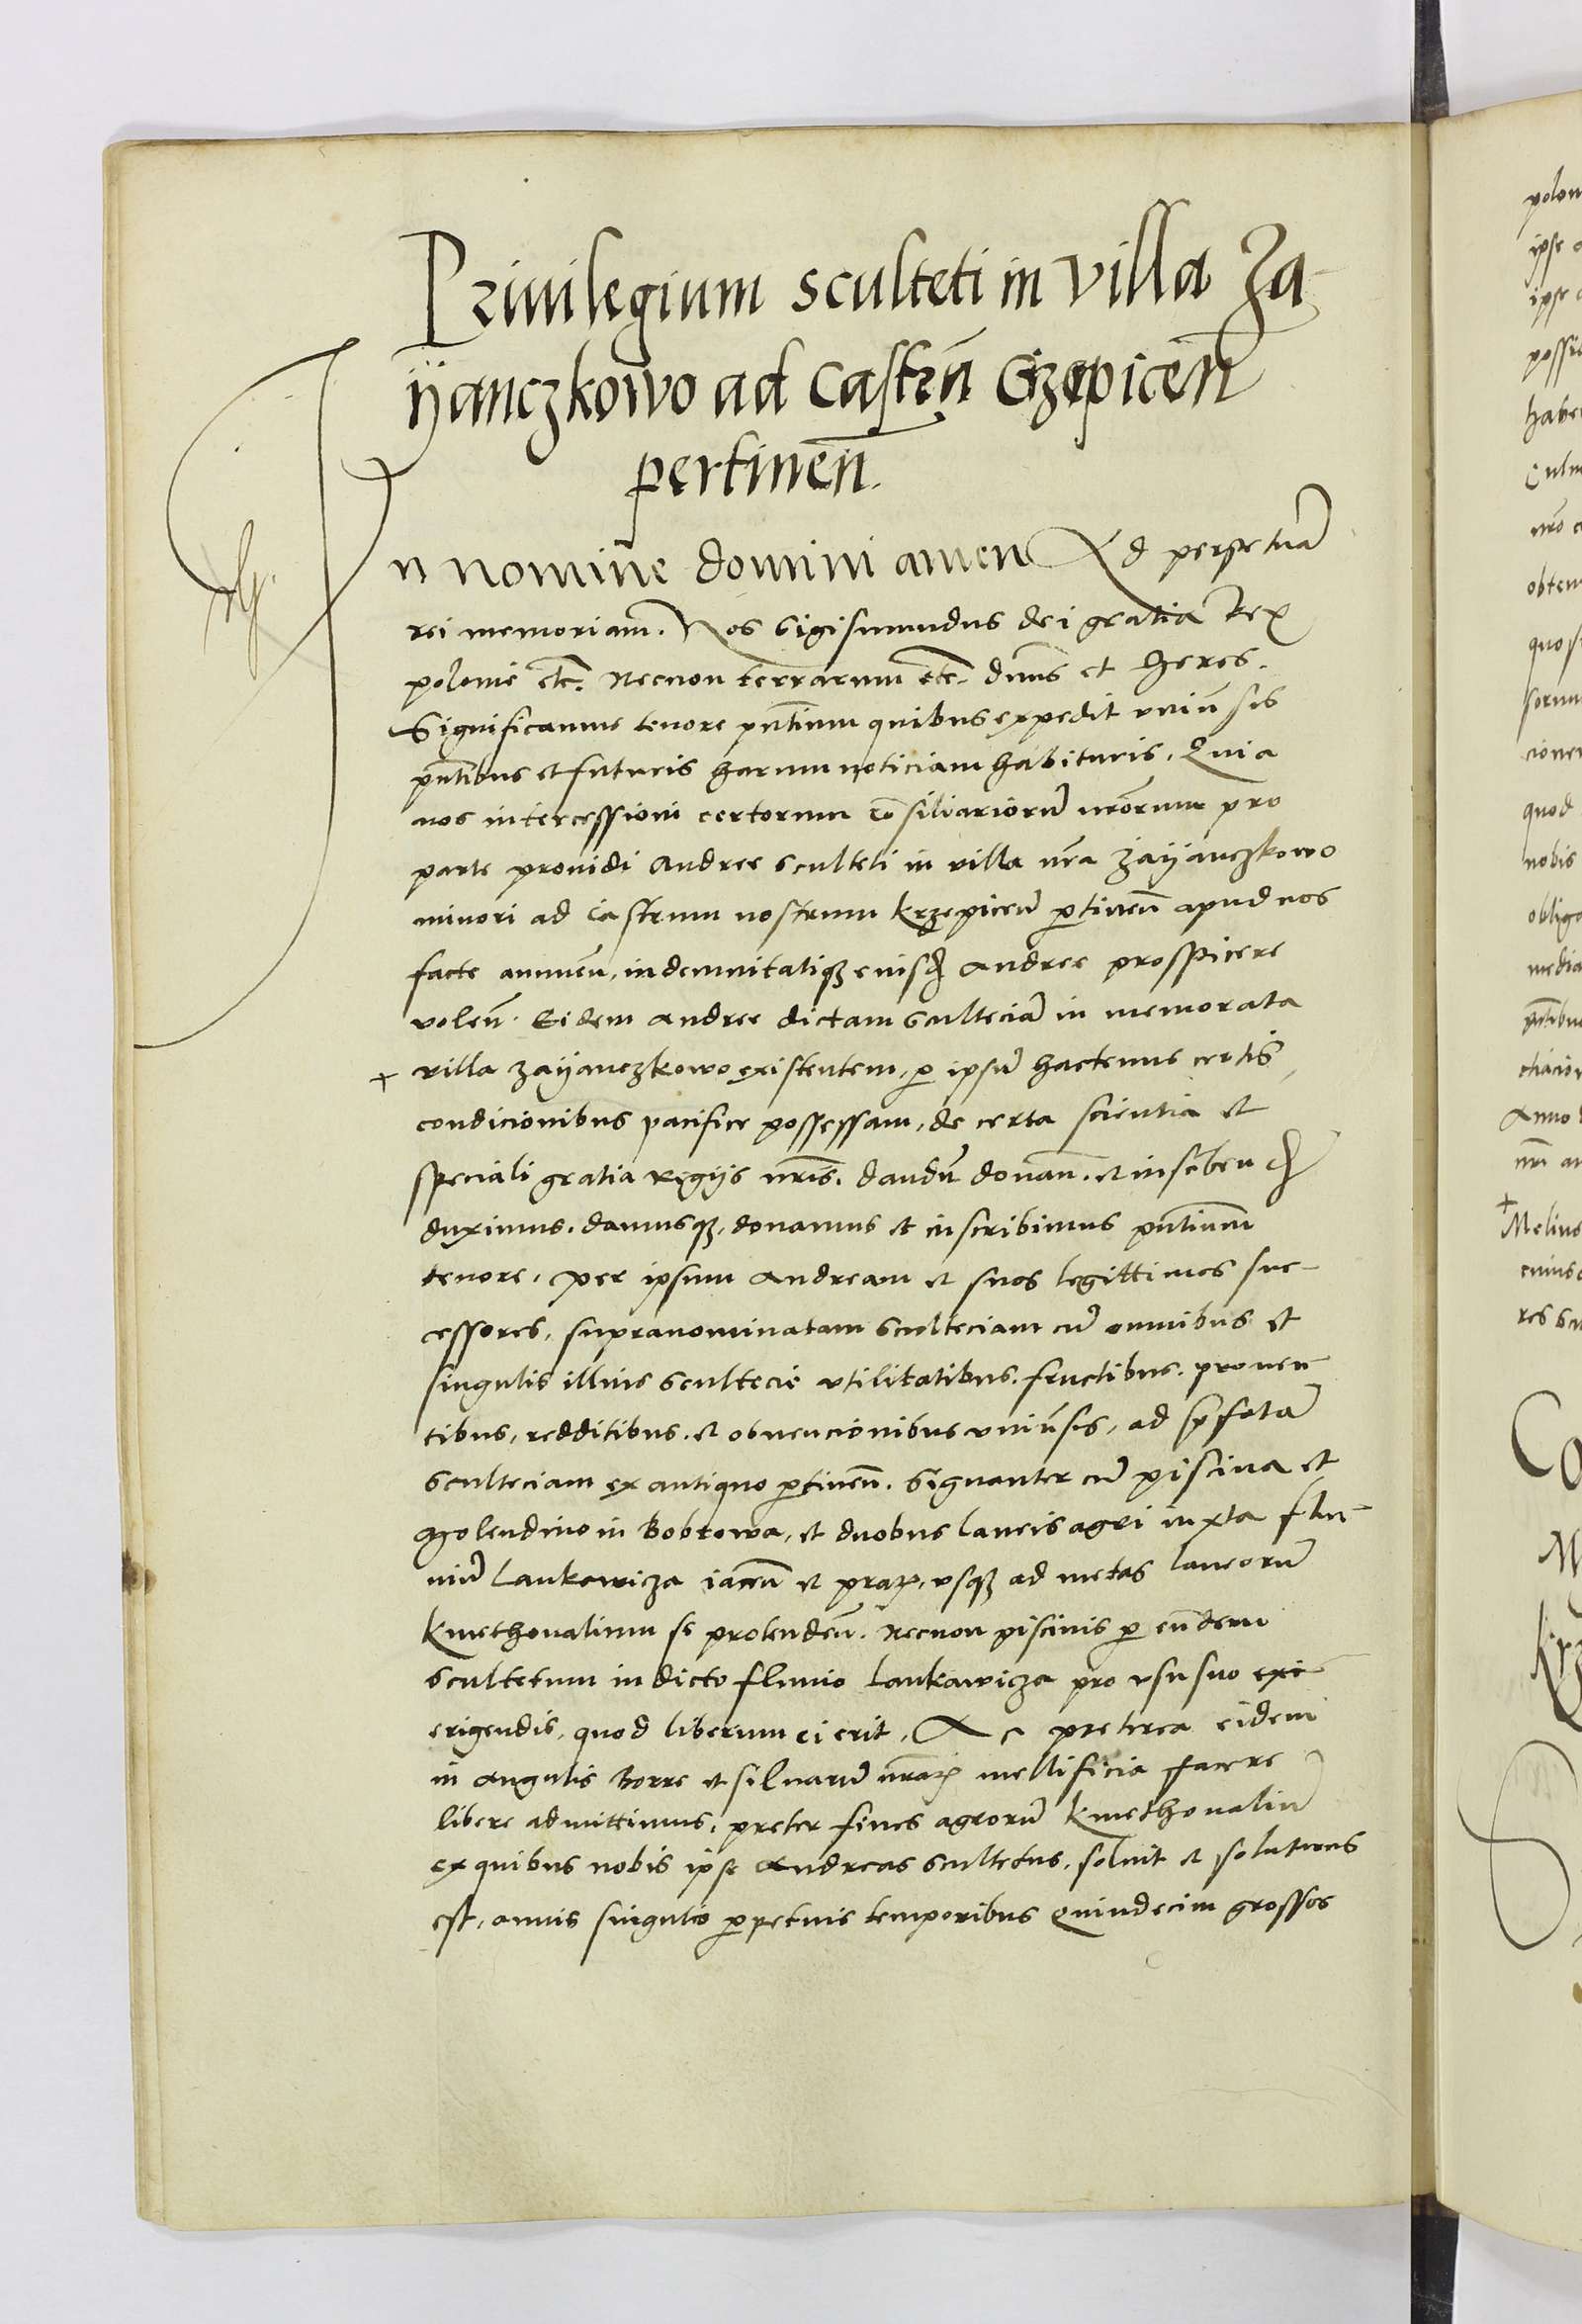 Priuilegium sculteti in villa Za-
ijanczkowo ad Castrū Crzepiceñ
pertineñ.
In nomine domini amen Ad perpetuā
rei memoriam. Nos Sigismundus dei gratia Rex
polonie etc. Necnon terrarum etc. dnns et heres.
Significamus tenore pntium quibus expedit vniūsis
pntibus et futuris harum noticiam habituris. Quia
nos intercessioni certorum cōsiliariorū nrōrum pro
parte prouidi Andree sculteti in villa nrā Zaijanczkowo
minori ad Castrum nostrum krzepiceñ ptineñ apud nos
facte annueñ, indemnitatiqz euisd Andree prospicere
voleñ. Eidem Andree dictam scultеciā in memorata
+ villa Zaijanczkowo existentem, p ipsū hactenus certis
condicionibus pacifice possessam, de certa scientia et
speciali gratia regijs nrīs. dandū donañ. et inscbeñd
duximus. damusqz, donamus et inscribimus pntium
tenore, per ipsum Andream et suos legittimos suc-
cessores, supranominatam sculteciam cū omnibus et
singulis illius scultecie vtilitatibus. fructibus. prouen-
tibus, redditibus. et obuencionibus vniūsis, ad pfatā
sculteciam ex antiquo ptineñ. Signanter cū piscina et
Molendino in Bobrowa, et duobus laneis agri iuxta flu-
uiū Lankawicza iaceñ et prat, vsqz ad metas laneorū
kmethonalium se protendeñ. Necnon piscinis p eundem
scultetum in dicto fluuio Lankawicza pro vsu suo exi
erigendis, quod liberum ei erit, Ac preterea eidem
in angulis Borre et siluarū nrar mellificia facere
libere admittimus, preter fines agrorū kmethonaliū
ex quibus nobis ipse Andreas scultetus, soluit et soluturus
est, annis singulis ppetuis temporibus quindecim grossos
polon
ipse a
ipse
possi
haber
Culm
nrō
obten
quos
sorum
cionem
quod
nobis
obliga
media
pntibus
Anno
nrī
+
Melius
res
Co
M
krz